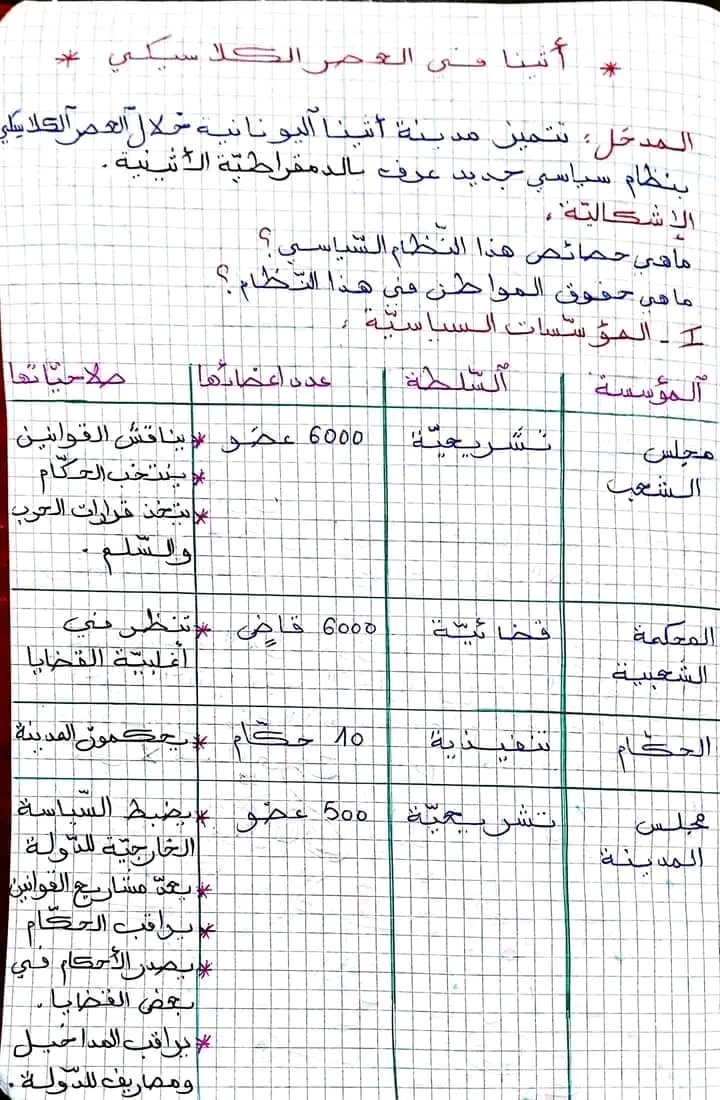 * أثينا في العصر الكلاسيكي *
المدخل: تتميز مدينة أثينا اليونانية خلال العصر الكلاسيكي
بنظام سياسي جديد عرف بالدمقراطيّة الأثينية.
الإشكاليّة.
ماهي خصائص هذا النّظام السّياسي؟
ماهي حقوق المواطن في هذا النّظام؟
I - المؤسّسات السياسيّة:
المؤسسة السّلطة عدد اعضائها صلاحيّاتها
مجلس الشعب تشريعيّة 6000 عضو * يناقش القوانين
* ينتخب الحكّام
* يتخذ قرارات الحرب
والسّلم.
المحكمة الشعبية قضائيّة 6000 قاضٍ * تنظر في
أغلبيّة القضايا
الحكّام تنفيذية 10 حكّام * يحكمون المدينة
مجلس المدينة تشريعيّة 500 عضو * يضبط السّياسة
الخارجيّة للدّولة
* يعدّ مشاريع القوانين
* يراقب الحكّام
* يصدر الأحكام في
بعض القضايا.
* يراقب المداخيل
ومصاريف للدّولة.